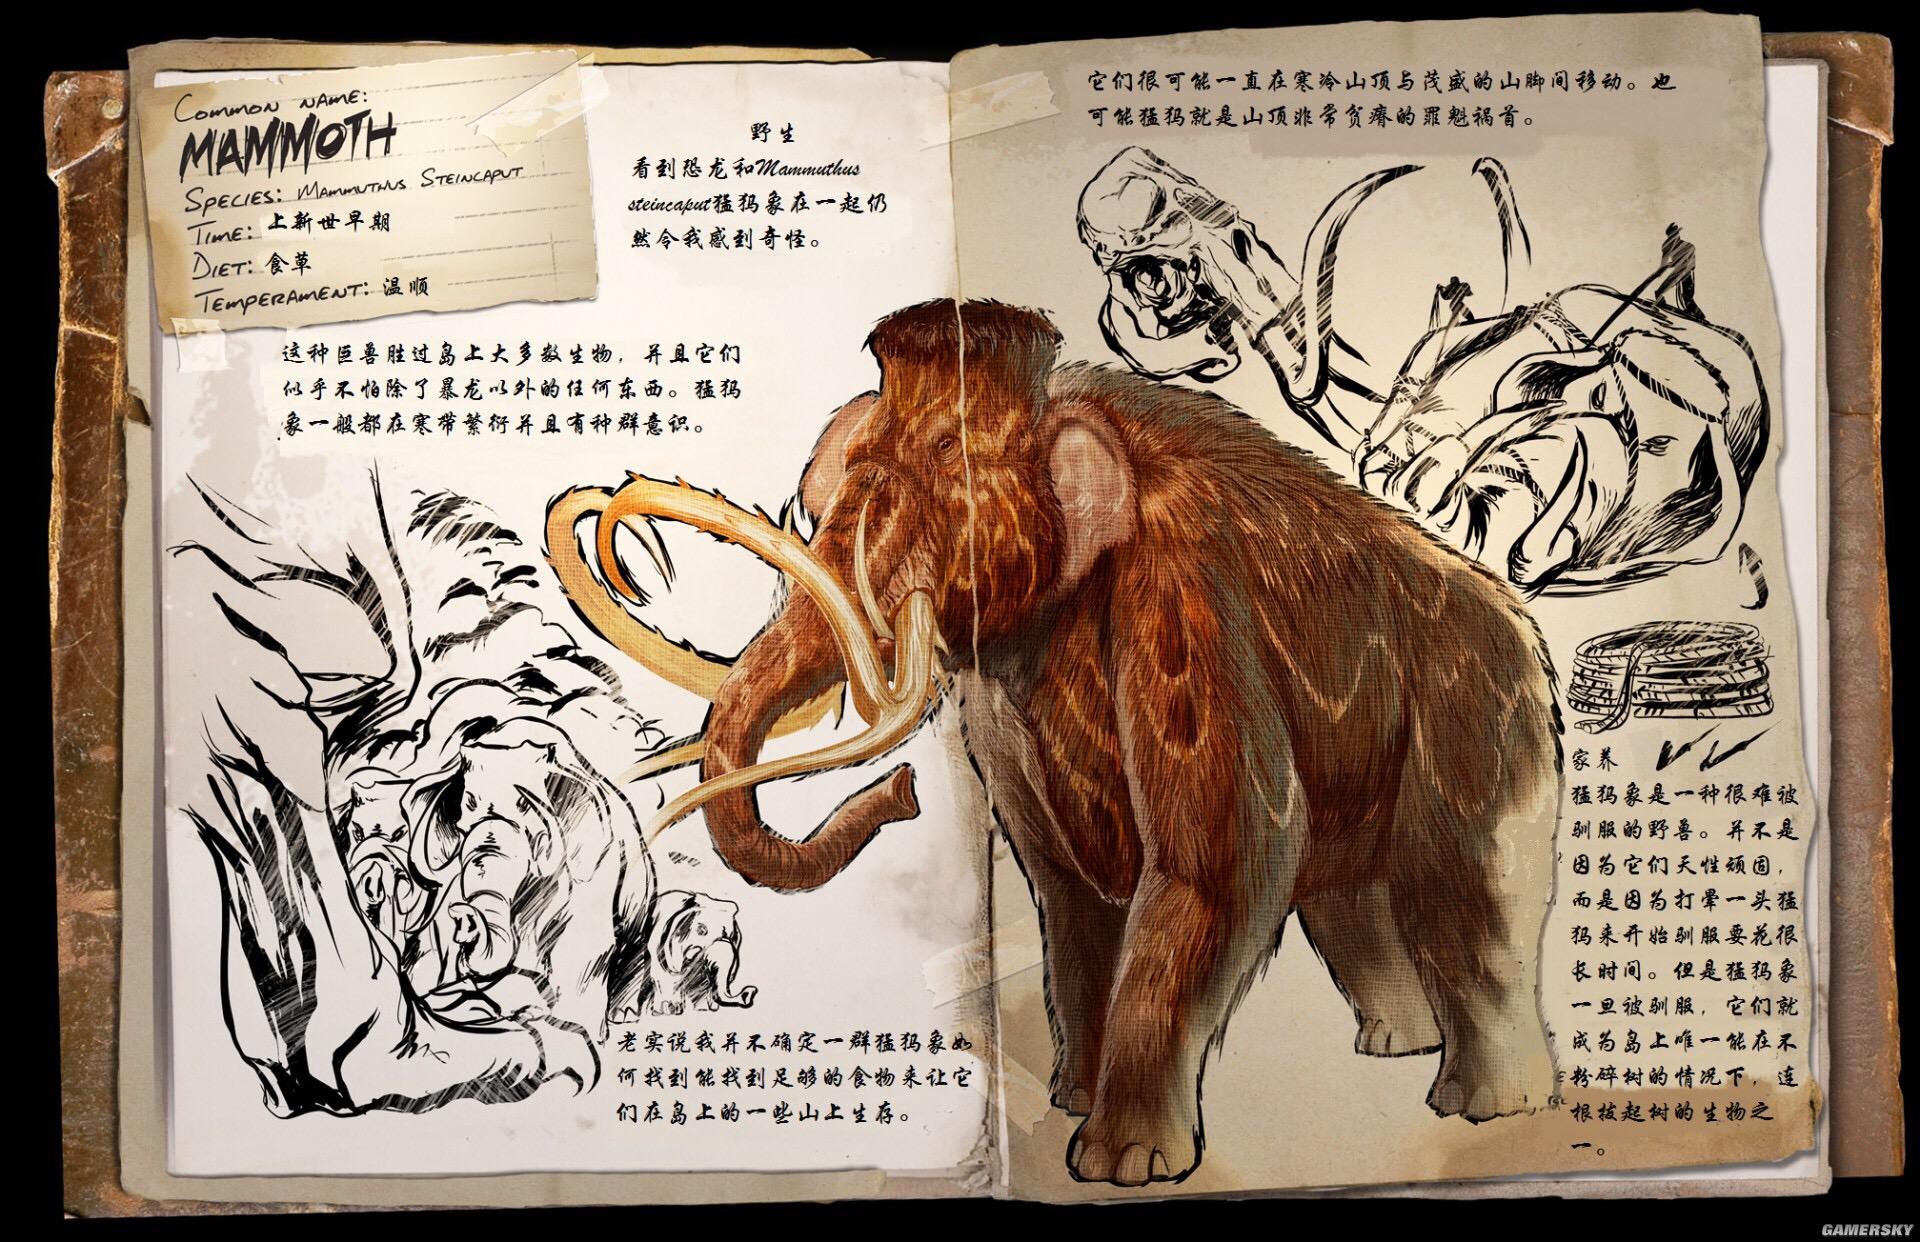 COMMON NAME:
MAMMOTH
SPECIES: MAMMUTHUS STEINCAPUT
TIME: 上新世早期
DIET: 食草
TEMPERAMENT: 温顺
野生
看到恐龙和Mammuthus
steincaput猛犸象在一起仍
然令我感到奇怪。
这种巨兽胜过岛上大多数生物，并且它们
似乎不怕除了暴龙以外的任何东西。猛犸
象一般都在寒带繁衍并且有种群意识。
老实说我并不确定一群猛犸象如
何找到能找到足够的食物来让它
们在岛上的一些山上生存。
它们很可能一直在寒冷山顶与茂盛的山脚间移动。也
可能猛犸就是山顶非常贫瘠的罪魁祸首。
家养
猛犸象是一种很难被
驯服的野兽。并不是
因为它们天性顽固，
而是因为打晕一头猛
犸来开始驯服要花很
长时间。但是猛犸象
一旦被驯服，它们就
成为岛上唯一能在不
粉碎树的情况下，连
根拔起树的生物之
一。
GAMERSKY